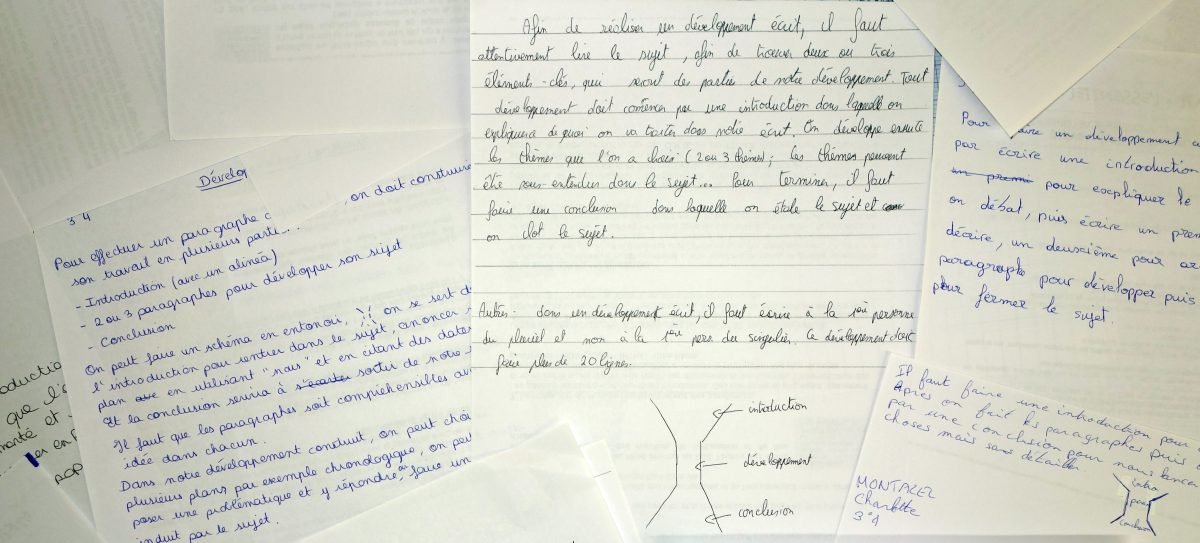 Afin de réaliser un développement écrit, il faut
attentivement lire le sujet, afin de trouver deux ou trois
éléments-clés, qui seront des parties de notre développement. Tout
développement doit commencer par une introduction dans laquelle on
expliquera de quoi on va traiter dans notre écrit. On développe ensuite
les thèmes que l'on a choisi (2 ou 3 thèmes); les thèmes peuvent
être sous-entendus dans le sujet... Pour terminer, il faut
faire une conclusion dans laquelle on étale le sujet et
on clot le sujet.
Autres: dans un développement écrit, il faut écrire à la personne
du pluriel et non à la pers du singulier. Ce développement doit
faire plus de 20 lignes.
introduction
développement
conclusion
Dévelop
34
Pour effectuer un paragraphe c , on doit construire
son travail en plusieurs parti...
- Introduction (avec un alinéa)
- 2 ou 3 paragraphes pour développer son sujet
- Conclusion
On peut faire un schéma en entonoir, on se sert d
l'introduction pour rentrer dans le sujet, anoncer
plan en utilisant "nous" et en citant des dates
Et la conclusion servira à sortir de notre
Il faut que les paragraphes soit compréhensibles av
idée dans chacun.
Dans notre développement construit, on peut choi
plusieurs plans par exemple chronologique, on peu
poser une problématique et y répondre, ou faire un
induit par le sujet.
oductio
que l'
manté et
er en p
pap
Pour aire un développement c
par écrire une introduction
pour expliquer le
on débat, puis écrire un prem
décrire, un deuxième pour ar
paragraphe pour développer puis
pour fermer le sujet.
Il faut faire une introduction pour
Après on fait les paragraphes puis
par une conclusion pour nous
choses mais sans détailler
MONTAZEL
Charlotte
3°4
intro
para
conclusion